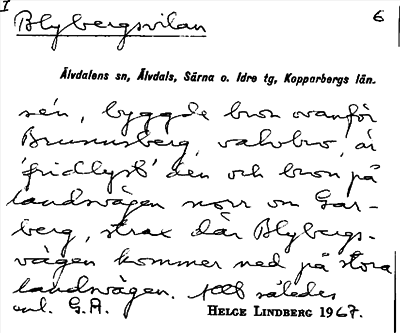 I
Blybergsvilan
6
Älvdalens sn, Älvdals, Särna o. Idre tg, Kopparbergs län.
sén, byggde bron ovanför
Brunnsberg, valvbro, är
'fridlyst' den och bron på
landsvägen norr om Gar-
berg, strax där Blybergs-
vägen kommer ned på stora
landsvägen. således
enl. G.A.
HELGE LINDBERG 1967.